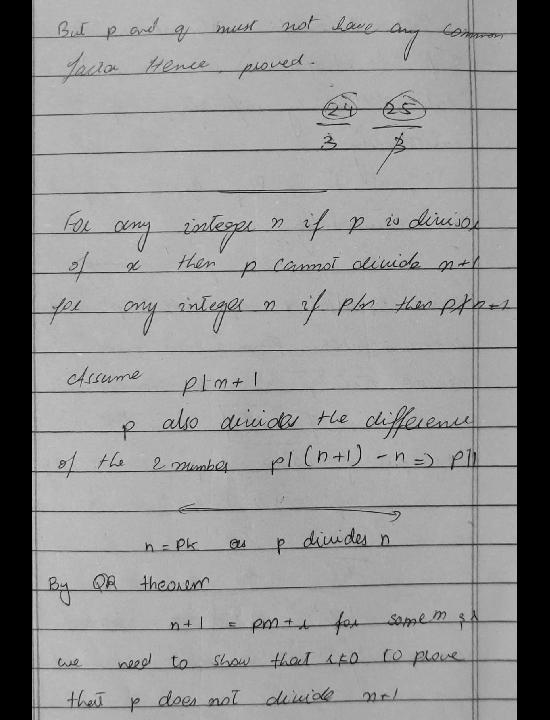 But p and q must not have any common
factor Hence, proved.
24 25
3 3
For any integer n if p is divisor
of x then p cannot divide n+1
for any integer n if p/n then p∤n+1
Assume p|n+1
p also divides the difference
of the 2 number p|(n+1)-n => p|1
n = pk as p divides n
By QR theorem
n+1 = pm+r for some m, r
we need to show that r≠0 to prove
that p does not divide n+1